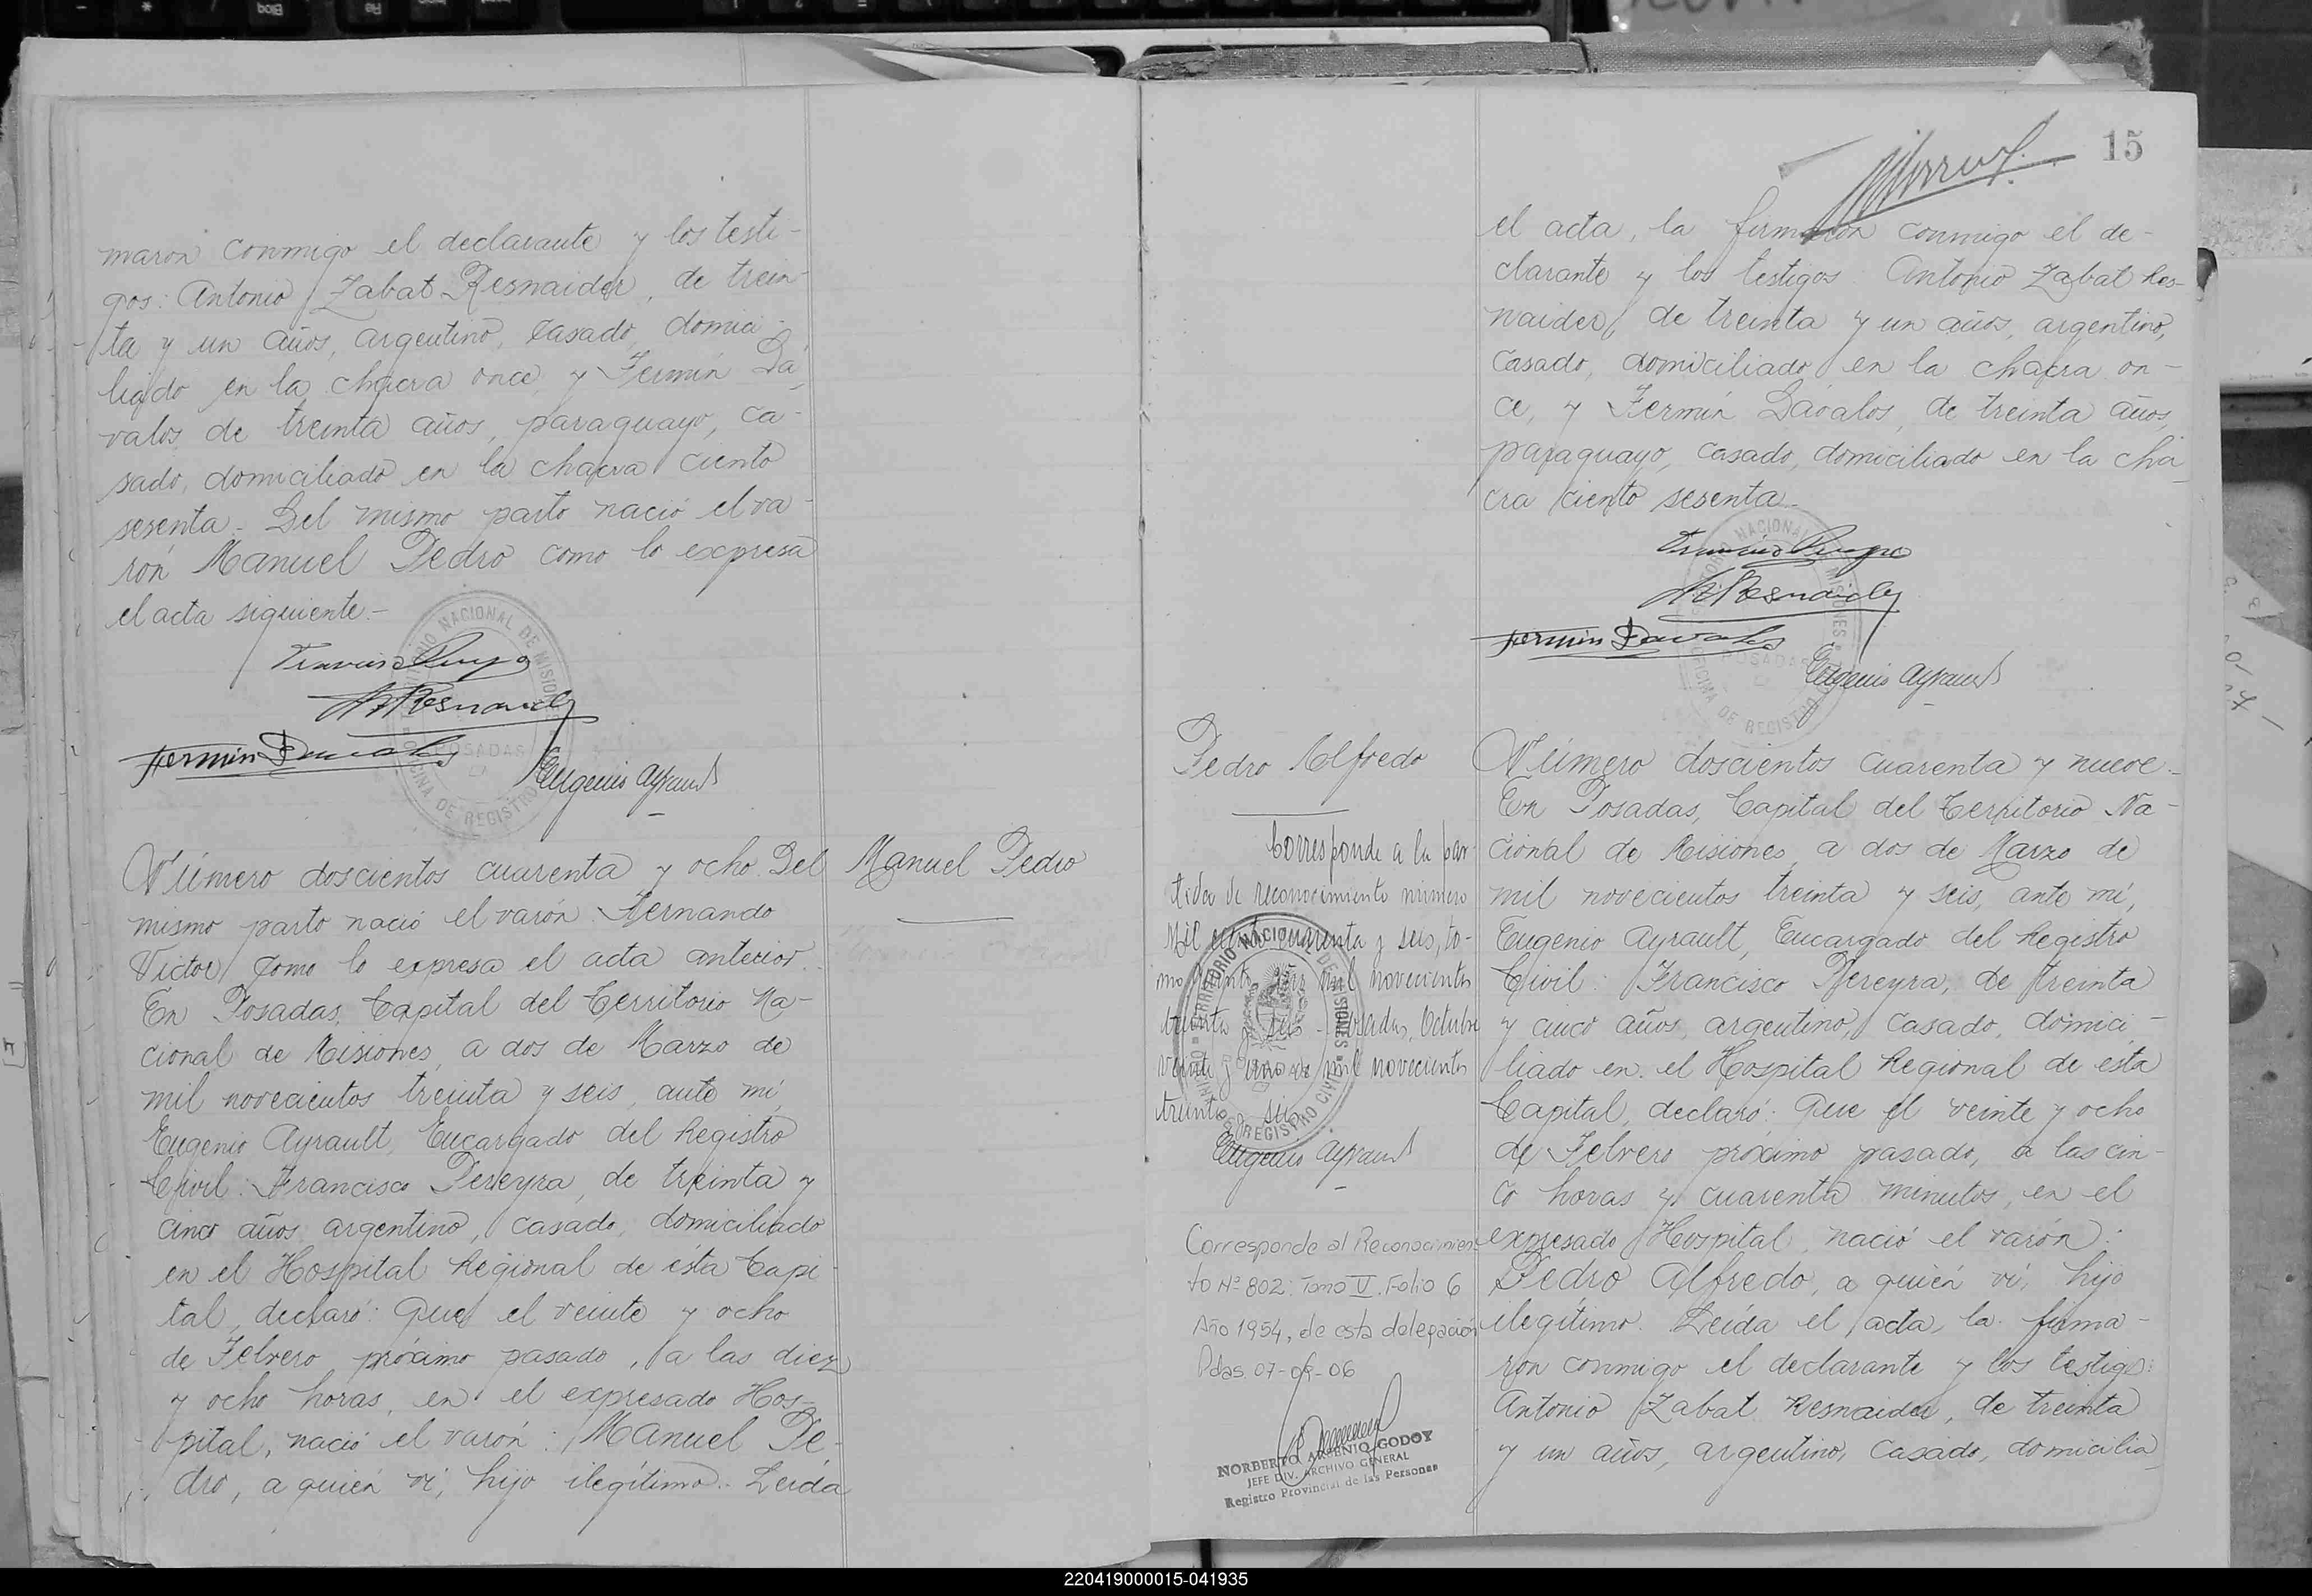 maron conmigo el declarante y los testi-
gos: Antonio Zabat Resnaider, de trein-
ta y un años, argentino, casado, domici-
liado en la chacra once, y Fermín Dá-
valos de treinta años, paraguayo, ca-
sado, domiciliado en la chacra ciento
sesenta. Del mismo parto nació el va-
rón Manuel Pedro como lo expresa
el acta siguiente.-
TERRITORIO NACIONAL DE MISIONES
POSADAS
OFICINA DE REGISTRO
Fermín Dávalos
Eugenio Ayrault
Número doscientos cuarenta y ocho. Del
mismo parto nació el varón Hernando
Victor, como lo expresa el acta anterior.
En Posadas, Capital del Territorio Na-
cional de Misiones, a dos de Marzo de
mil novecientos treinta y seis, ante mí,
Eugenio Ayrault, Encargado del Registro
Civil: Francisco Pereyra, de treinta y
cinco años, argentino, casado, domiciliado
en el Hospital Regional de ésta Capi-
tal, declaró: Que el veinte y ocho
de Febrero próximo pasado, a las diez
y ocho horas, en el expresado Hos-
pital, nació el varón: Manuel Pe-
dro, a quién ví, hijo ilegítimo. Leída
Manuel Pedro
15
el acta, la firmaron conmigo el de-
clarante y los testigos Antonio Zabat Res-
naider, de treinta y un años, argentino,
casado, domiciliado en la chacra on-
ce, y Fermín Dávalos, de treinta años,
paraguayo, casado, domiciliado en la cha-
cra ciento sesenta.
TERRITORIO NACIONAL DE MISIONES
POSADAS
OFICINA DE REGISTRO
Fermin Davalos
Eugenio Ayrault
Pedro Alfredo
Corresponde a la par-
tida de reconocimiento número
Mil ciento cuarenta y seis, to-
mo año mil novecientos
treinta y seis - Posadas, Octubre
veinte y uno de mil novecientos
treinta y seis
TERRITORIO NACIONAL DE MISIONES
REGISTRO CIVIL
Eugenio Ayrault
Corresponde al Reconocimien-
to Nº 802: Tomo V. Folio 6
Año 1954, de esta delegación
Pdas. 07-09-06
NORBERTO ARSENIO GODOY
JEFE DIV. ARCHIVO GENERAL
Registro Provincial de las Personas
Número doscientos cuarenta y nueve.-
En Posadas, Capital del Territorio Na-
cional de Misiones, a dos de Marzo de
mil novecientos treinta y seis, ante mí,
Eugenio Ayrault, Encargado del Registro
Civil: Francisco Pereyra, de treinta
y cinco años, argentino, casado, domici-
liado en el Hospital Regional de esta
Capital, declaró: Que el veinte y ocho
de Febrero próximo pasado, a las cin-
co horas y cuarenta minutos, en el
expresado Hospital, nació el varón:
Pedro Alfredo, a quién ví, hijo
ilegítimo. Leída el acta, la firma-
ron conmigo el declarante y los testigos:
Antonio Zabat Resnaider, de treinta
y un años, argentino, casado, domicilia
220419000015-041935